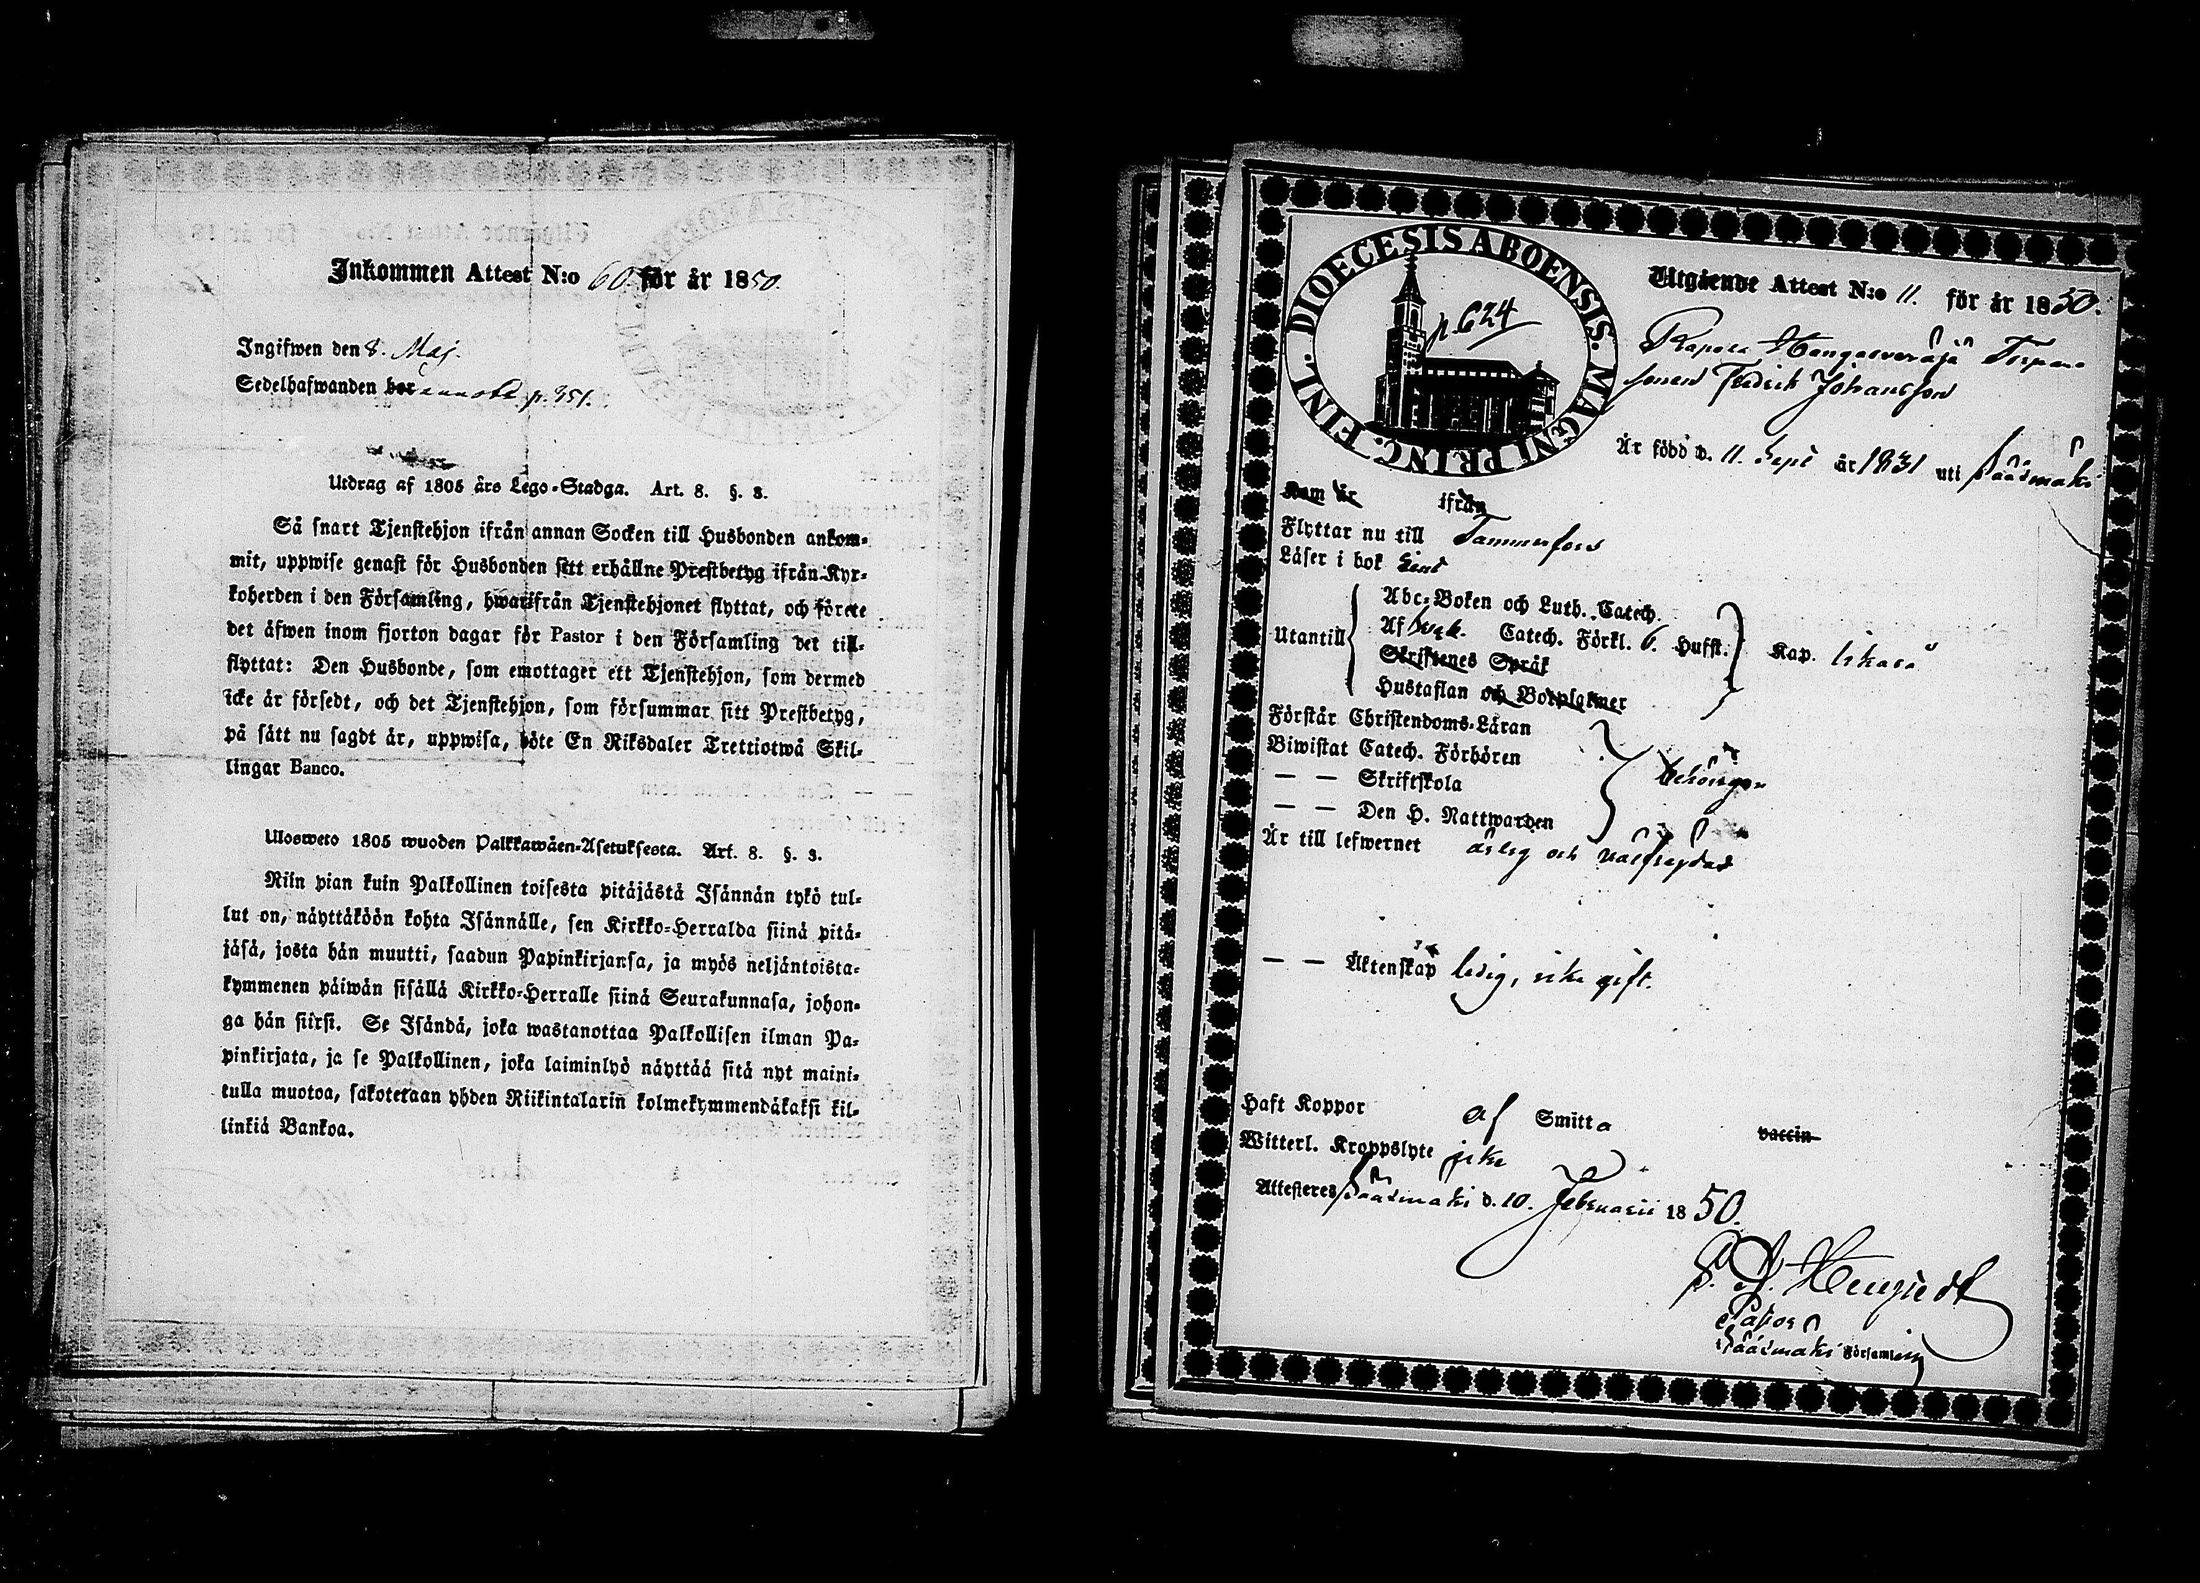 Inkommen Attest N:o 60 för år 1850.
Ingifwen den 8. Maj.
Sedelhafwanden bor p. 351.
Utdrag af 1805 års Lego-Stadga. Art. 8. §. 3.
Så snart Tjenstehjon ifrån annan Socken till Husbonden ankom-
mit, uppwise genast för Husbonden sitt erhållne Prestbetyg ifrån Kyr-
koherden i den Församling, hwarifrån Tjenstehjonet flyttat, och förete
det äfwen inom fjorton dagar för Pastor i den Församling det till-
flyttat: Den Husbonde, som emottager ett Tjenstehjon, som dermed
icke är försedt, och det Tjenstehjon, som försummar sitt Prestbetyg,
på sätt nu sagdt är, uppwisa, böte En Riksdaler Trettiotwå Skil-
lingar Banco.
Ulosweto 1805 wuoden Palkkawäen-Asetuksesta. Art. 8. §. 3.
Niin pian kuin Palkollinen toisesta pitäjästä Isännän tykö tul-
lut on, näyttäköön kohta Isännälle, sen Kirkko-Herralda siinä pitä-
jäsä, josta hän muutti, saadun Papinkirjansa, ja myös neljäntoista-
kymmenen päiwän sisällä Kirkko-Herralle siinä Seurakunnasa, johon-
ga hän siirsi. Se Isändä, joka wastanottaa Palkollisen ilman Pa-
pinkirjata, ja se Palkollinen, joka laiminlyö näyttää sitä nyt maini-
tulla muotoa, sakotetaan yhden Riikintalarin kolmekymmendäkaksi kil-
linkiä Bankoa.
DIOECESIS ABOENSIS. MAGNI PRINC. FINL.
p. 624
Utgående Attest N:o 11. för år 1850.
Rapola Hangasveräjä Torpare
sonen Fredrik Johansson
Är född d. 11. Sept år 1831 uti Sääxmäki
Kom år ifrån
Flyttar nu till Tammerfors
Läser i bok
Utantill
Abc-Boken och Luth. Catech.
Af Catech. Förkl. 6. Hufst. Kap.
Skriftenes Språk
Hustaflan och Botpsalmer
Förstår Christendoms-Läran
Biwistat Catech. Förhören
— — Skriftskola
— — Den H. Nattwarden
Är till lefwernet ärlig och välfrejdad
— — Äktenskap ledig, icke gift.
Haft Koppor af Smitta vaccin
Witterl. Kroppslyte icke
Attesteres Sääxmäki d. 10. Februarii 1850.
Pastor
Sääxmäki Församling